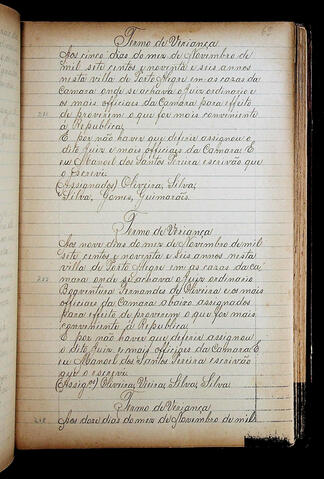 69
Termo de Veriança
Aos cinco dias do mez de Novembro de
mil sete centos e noventa e seis annos
nesta villa de Porto Alegre em as cazas da
Camara onde se achava o Juiz ordinario e
os mais officiais da Camara para effeito
de proverem o que for mais conveniente
à Republica;
E por não haver que deferir assignou o
dito Juiz e mais officiais da Camara: E
eu Manoel dos Santos Pereira escrivão que
o escrevi
(Assignados) Oliveira, Silva,
Silva, Gomes, Guimarais.
Termo de Veriança
Aos nove dias do mez de Novembro de mil
sete centos e noventa e seis annos nesta
villa de Porto Alegre em as cazas da Ca
mara onde se achava o Juiz ordinario
Boaventura Fernandes de Oliveira e os mais
officiais da Camara abaixo assignados
para effeito de proverem o que for mais
conveniente à Republica;
E por não haver que deferir assignou
o dito Juiz e mais officiais da Camara: E
eu Manoel dos Santos Pereira escrivão
que o escrevi
(Assig.os) Oliveira, Vieira, Silva, Silva.
Termo de Veriança
Aos doze dias do mez de Novembro de mil